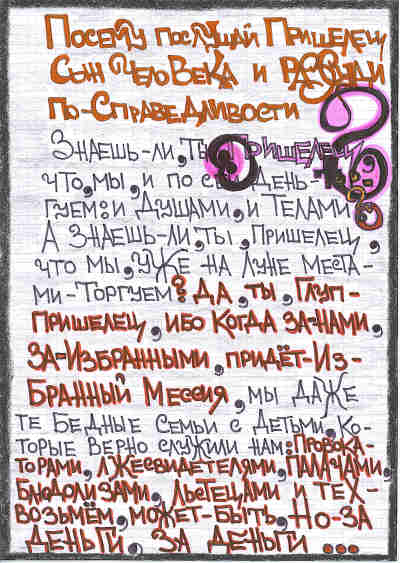 Посему послушай Пришелец
Сын Человека и Рассуди
по-Справедливости
Знаешь-ли, ты, Пришелец,
что, мы, и по сей День-Тор-
гуем: и Душами, и Телами
А Знаешь-ли, ты, пришелец,
что мы, уже на Луне места-
ми-Торгуем? Да, ты, Глуп-
пришелец, ибо Когда за-нами,
за-Избранными, придёт-Из-
бранный Мессия, мы даже
те Бедные Семьи с Детьми, ко-
торые верно служили нам: Провока-
торами, лжесвидетелями, палачами,
блюдолизами, льстецами и тех-
возьмём, может-быть, но-за
деньги, за деньги ...